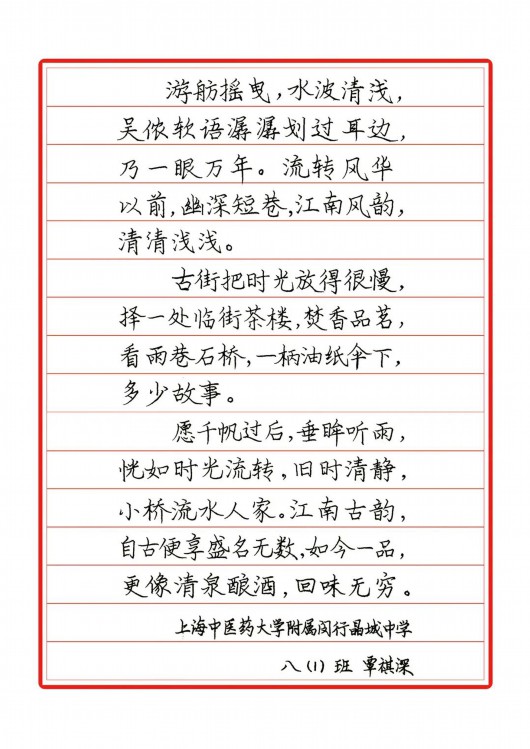 游舫摇曳，水波清浅，
吴侬软语潺潺划过耳边，
乃一眼万年。流转风华
以前，幽深短巷，江南风韵，
清清浅浅。
古街把时光放得很慢，
择一处临街茶楼，焚香品茗，
看雨巷石桥，一柄油纸伞下，
多少故事。
愿千帆过后，垂眸听雨，
恍如时光流转，旧时清静，
小桥流水人家。江南古韵，
自古便享盛名无数，如今一品，
更像清泉酿酒，回味无穷。
上海中医药大学附属闵行晶城中学
八（1）班 覃祺深